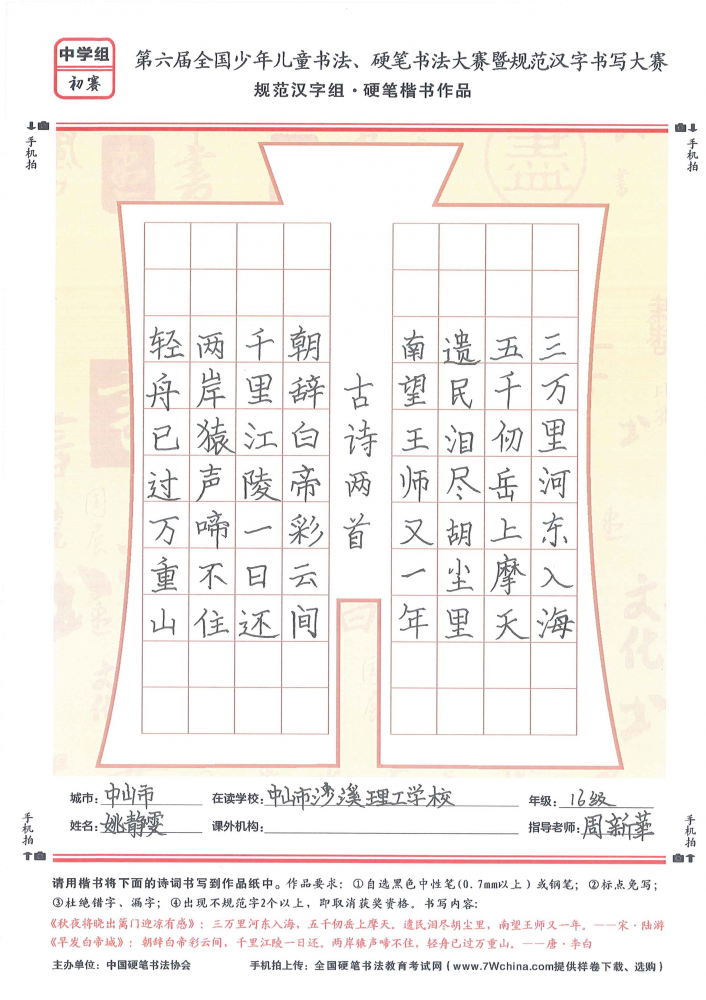 中学组
初赛
第六届全国少年儿童书法、硬笔书法大赛暨规范汉字书写大赛
规范汉字组·硬笔楷书作品
手机拍
手机拍
三万里河东入海
五千仞岳上摩天
遗民泪尽胡尘里
南望王师又一年
古诗两首
朝辞白帝彩云间
千里江陵一日还
两岸猿声啼不住
轻舟已过万重山
城市：中山市 在读学校：中山市沙溪理工学校 年级：16级
姓名：姚静雯 课外机构： 指导老师：周新华
手机拍
手机拍
请用楷书将下面的诗词书写到作品纸中。作品要求：①自选黑色中性笔(0.7mm以上)或钢笔；②标点免写；
③杜绝错字、漏字；④出现不规范字2个以上，即取消获奖资格。书写内容：
《秋夜将晓出篱门迎凉有感》：三万里河东入海，五千仞岳上摩天。遗民泪尽胡尘里，南望王师又一年。——宋·陆游
《早发白帝城》：朝辞白帝彩云间，千里江陵一日还。两岸猿声啼不住，轻舟已过万重山。——唐·李白
主办单位：中国硬笔书法协会 手机拍上传：全国硬笔书法教育考试网(www.7Wchina.com提供样卷下载、选购)